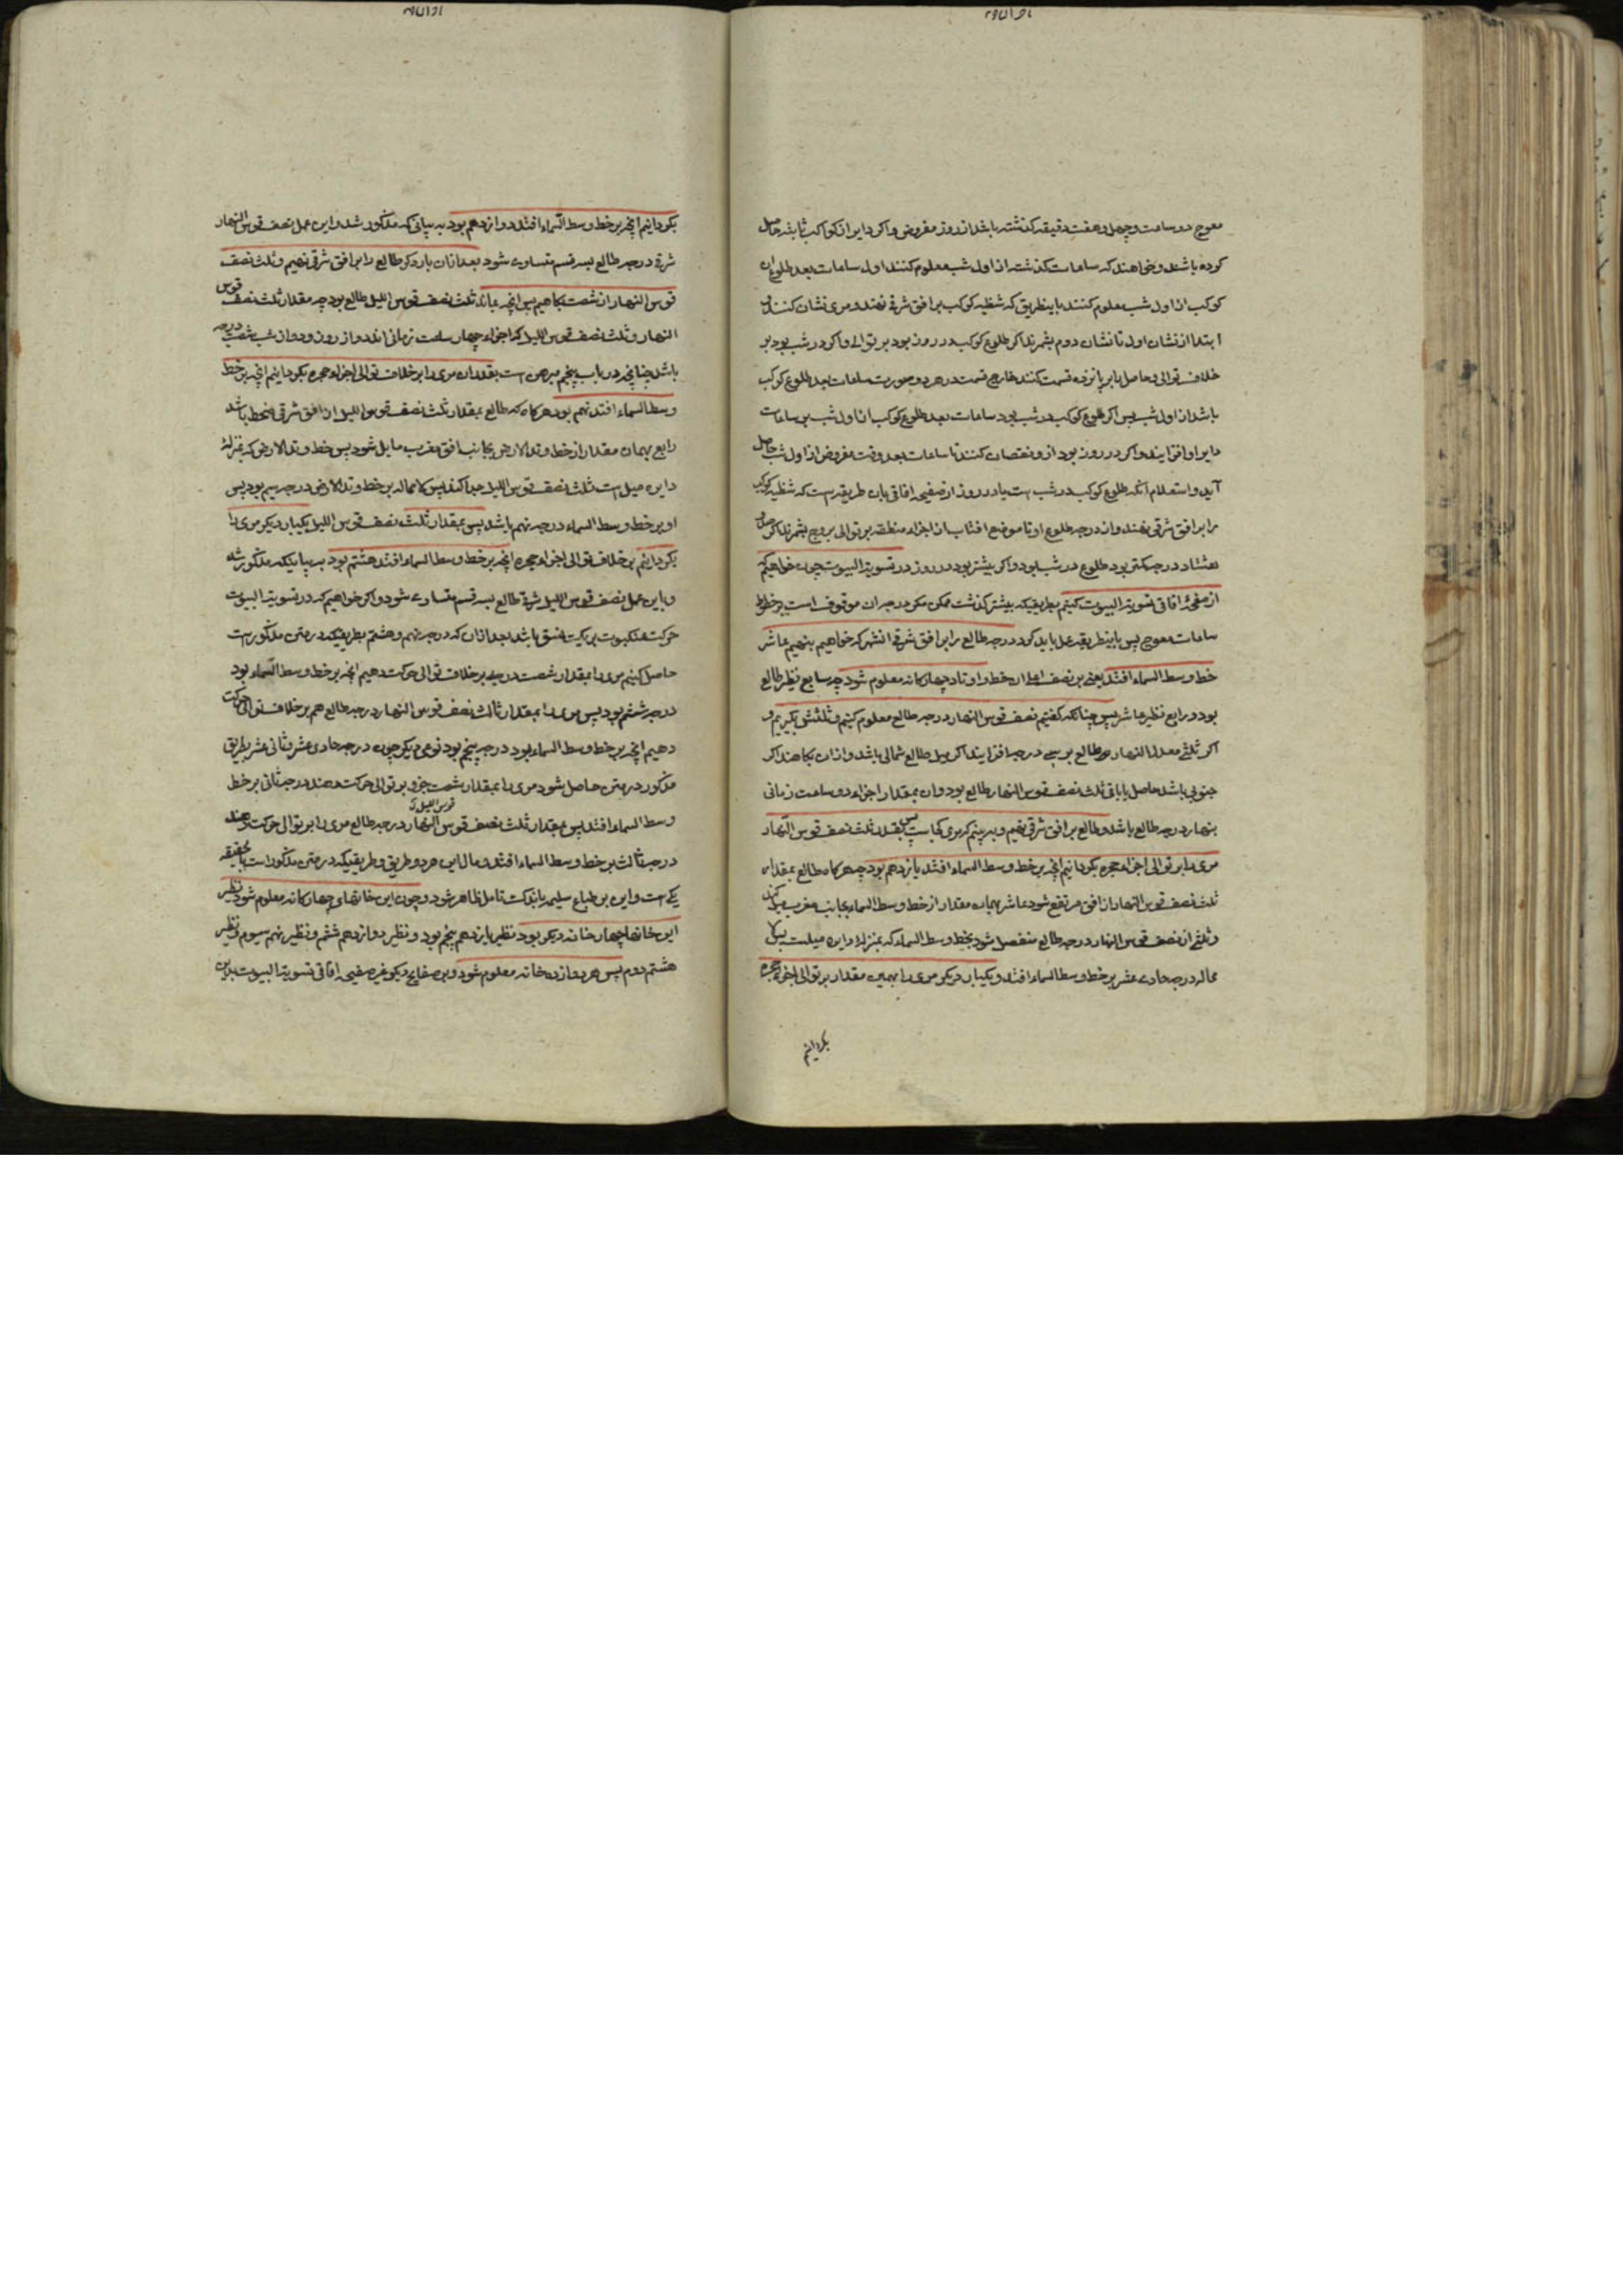 معوج دو ساعت و چهل و هفت دقیقه گذشته باشد از روز مفروض و اگر دایر از کواکب ثابته حاصل
کرده باشند و خواهند که ساعات گذشته از اول شب معلوم کنند اول ساعات بعد طلوع آن
کوکب از اول شب معلوم کنند باینطریق که شظیه کوکب بر افق شرقی نهند و مری نشان کنند
ابتدا از نشان اول تا نشان دوم بشمرند اگر طلوع کوکب در روز بود بر توالی و اگر در شب بود بر
خلاف توالی و حاصل را بر پانزده قسمت کنند خارج قسمت در هر دو صورت ساعات بعد طلوع کوکب
باشد از اول شب پس اگر طلوع کوکب در شب بود ساعات بعد طلوع کوکب از اول شب بر ساعات
دایر او افزایند و اگر در روز بود از و نقصان کنند تا ساعات بعد وقت مفروض از اول شب حاصل
آید و استعلام آنکه طلوع کوکب در شب است یا در روز از صفیحه افاقی بان طریقه است که شظیه کوکب
را بر افق شرقی نهند و از درجه طلوع او تا موضع افتاب از اجزاء منطقه بر توالی بروج بشمرند اگر
هشتاد درجه کمتر بود طلوع در شب بود و اگر بیشتر بود در روز در تسویة البیوت چون خواهیم که
از صفحهٔ افاقی تسویة البیوت کنیم بطریقیکه پیشتر گذشت ممکن مکر در جبران موقوف است بر خطوط
ساعات معوج پس باینطریقه عمل باید کرد درجه طالع را بر افق شرقی آنشهر که خواهیم بنهیم عاشر
خط وسط السماء افتد یعنی بر نصف اعلی ان خط و اوتاد چهارکانه معلوم شود چه سابع نظیر طالع
بود و رابع نظیر عاشر پس چنانکه گفتیم نصف قوس النهار درجه طالع معلوم کنیم و ثلثش بگیریم و
اگر ثلثی معدل النهار طالع بر سی درجه افزایند اگر میل طالع شمالی باشد و از ان بکاهند اگر
جنوبی باشد حاصل یا باقی ثلث نصف قوس النهار طالع بود و ان بمقدار اجزاء دو ساعت زمانی
بنهار درجه طالع باشد و طالع بر افق شرقی نهیم و ببینیم که مری کجاست پس بقدر ثلث نصف قوس النهار
مری را بر توالی اجزاء حجره بگردانیم انچه بر خط وسط السماء افتد یازدهم بود چه هرکاه طالع بمقدار
ثلث نصف قوس النهار از افق مرتفع شود عاشر بهمان مقدار از خط وسط السماء بجانب مغرب میل کند
و ثلثی از نصف قوس النهار درجه طالع منفصل شود بخط وسط السماء که بمنزله دایره میلست پس لا
محاله درجه حادی عشر بر خط وسط السماء افتد و یکبار دیگر مری را بهمین مقدار بر توالی اجزاء حجره
بگردانیم
بگردانیم انچه بر خط وسط السماء افتد دوازدهم بود به بیانی که مذکور شد و این عمل نصف قوس النهار
شرقی درجه طالع بسه قسم متساوی شود بعد ازان بار دیگر طالع را بر افق شرقی نهیم و ثلث نصف
قوس النهار از شصت بکاهیم پس انچه بماند ثلث نصف قوس اللیل طالع بود چه مقدار ثلث نصف قوس
النهار و ثلث نصف قوس اللیل که اجزاء چهار ساعت زمانی اند دو از روز و دو از شب شصت درجه
باشد چنانچه در باب پنجم مبرهن است بقدر ان مری را بر خلاف توالی اجزاء حجره بگردانیم انچه بر خط
وسط السماء افتد نهم بود هرگاه که طالع بمقدار ثلث نصف قوس اللیل از افق شرقی منحط باشد
رابع بهمان مقدار از خط وتد الارض بجانب افق مغرب مایل شود پس خط وتد الارض که بمنزلهٔ
دایره میل است ثلث نصف قوس اللیل جدا کند پس لا محاله بر خط وتد الارض درجه سیم بود پس
او بر خط وسط السماء درجه نهم باشد پس بمقدار ثلث نصف قوس اللیل یکبار دیگر مری را
بگردانیم بر خلاف توالی اجزاء حجره انچه بر خط وسط السماء افتد هشتم بود به بیانیکه مذکور شد
و باین عمل نصف قوس اللیل شرقی طالع بسه قسم متساوی شود و اگر خواهیم که در تسویة البیوت
حرکت عنکبوت بر یک نسق باشد بعد ازان که درجه نهم و هشتم بطریقیکه در متن مذکور است
حاصل کنیم مری را بمقدار شصت درجه بر خلاف توالی حرکت دهیم انچه بر خط وسط السماء بود
درجه ششم بود پس مری را بمقدار ثلث نصف قوس النهار درجه طالع هم بر خلاف توالی حرکت
دهیم انچه بر خط وسط السماء بود درجه پنجم بود نوعی دیگر چون درجه حادی عشر و ثانی عشر بطریق
مذکور در متن حاصل شود مری را بمقدار شصت جزو بر توالی حرکت دهند درجه ثانی بر خط
قوس اللیل
وسط السماء افتد پس بمقدار ثلث نصف قوس النهار درجه طالع مری را بر توالی حرکت دهند
درجه ثالث بر خط وسط السماء افتد و مال این هر دو طریق و طریقیکه در متن مذکور است بحقیقة
یکی است و این بر طباع سلیمه باندک تامل ظاهر شود و چون این خانهای چهارکانه معلوم شود نظیر
این خانها چهار خانه دیگر بود نظیر یازدهم پنجم بود و نظیر دوازدهم ششم و نظیر نهم سیوم و نظیر
هشتم دوم پس هر دوازده خانه معلوم شود و بر صفایح دیگر غیر صفیحه افاقی تسویة البیوت بدین